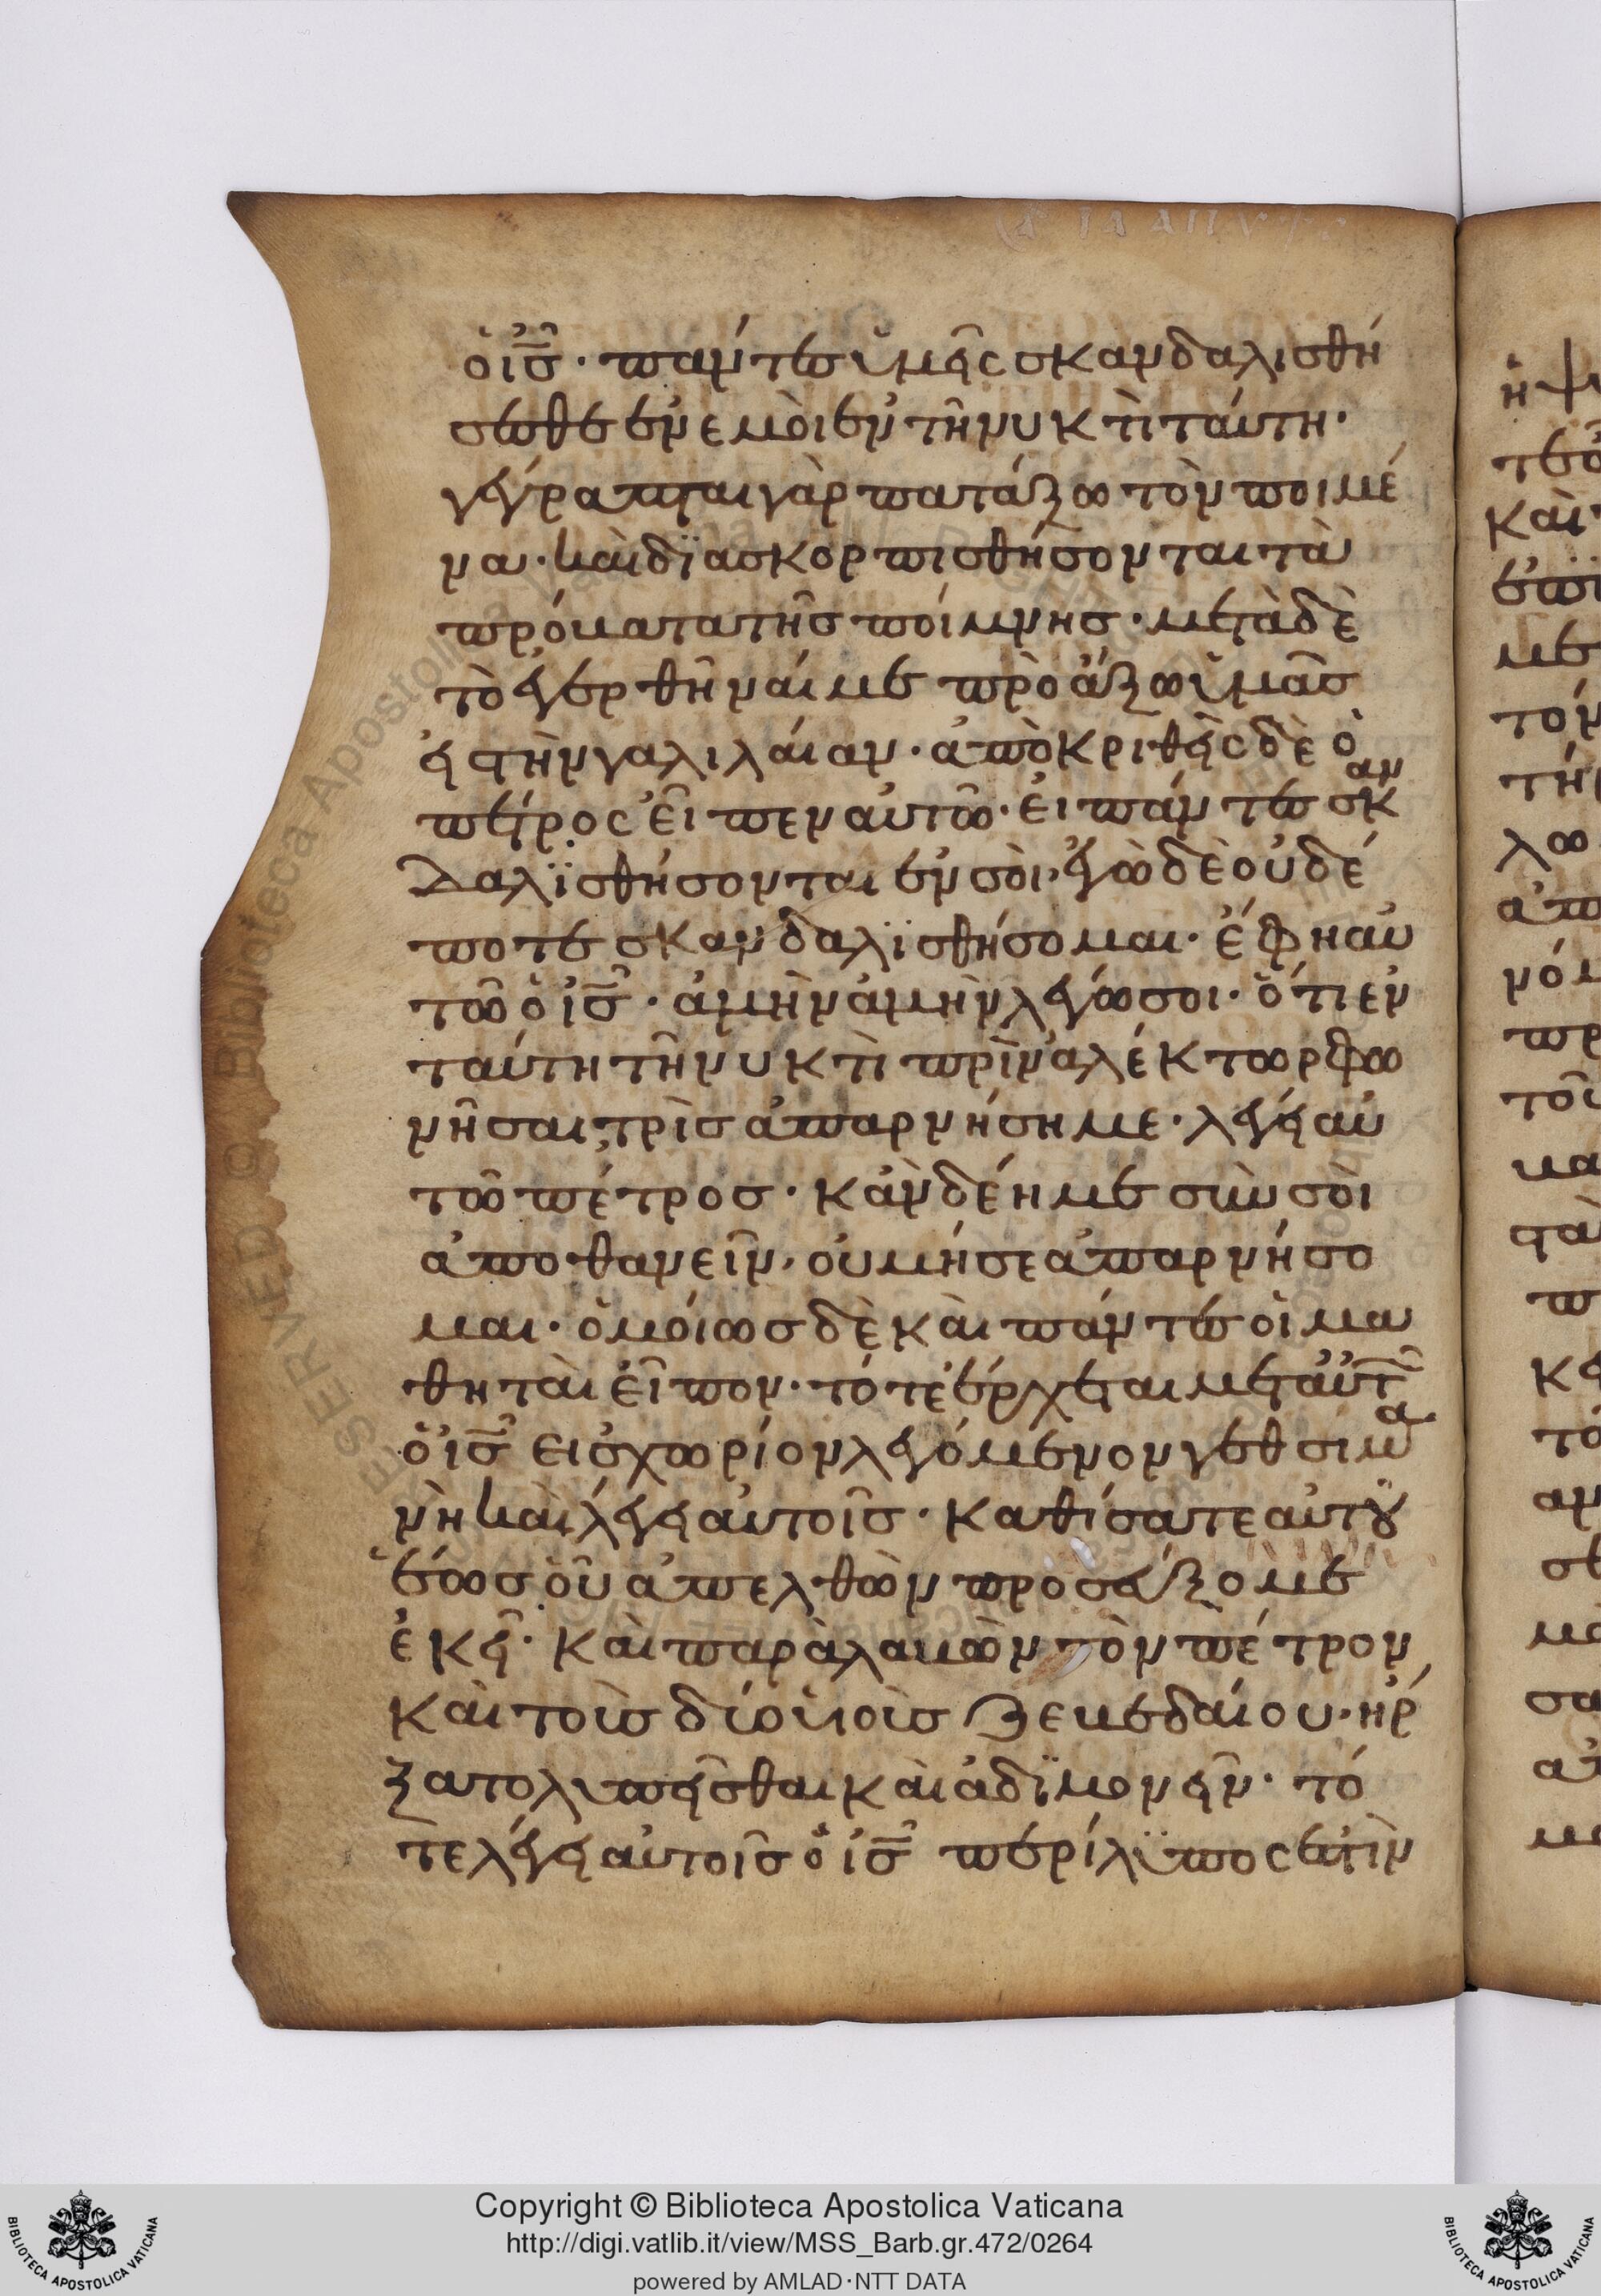 ὁ ἰ̅σ̅. πάντες ὑμεῖς σκανδαλισθή
σεσθε ἐν ἐμοὶ ἐν τῆ νυκτὶ ταύτη.
γέγραπται γὰρ πατάξω τὸν ποιμέ
να. καὶ δϊασκορπισθήσονται τὰ
πρόβατα τῆσ ποίμνησ. μετὰ δὲ
τὸ ἐγερθῆναί με προάξω ὑμᾶσ
εἰς τὴν γαλιλαίαν. ἀπὸκριθεὶς δὲ ὁ
πέτρος εἶπεν αὐτῶ. εἰ πάντες σκαν
δαλϊσθήσονται ἐν σοὶ, ἐγὼ δὲ οὐδέ
ποτε σκανδαλϊσθήσομαι. ἔφη αὐ
τῶ ὁ ἰ̅σ̅. ἀμὴν ἀμὴν λέγω σοι. ὅτι ἐν
ταύτη τῆ νυκτὶ πρὶν ἀλέκτωρ φω
νῆσαι, τρὶσ ἀπαρνήση με. λέγει αὐ
τῶ πέτροσ. κἀν δέη με σὺν σοὶ
ἀποθανεῖν, οὐ μή σε ἀπαρνήσο
μαι. ὁμοίωσ δὲ καὶ πάντες οἱ μα
θηταὶ εἶπον. τότε ἔρχεται μετ αὐτ
ὁ ἰ̅σ̅ εἰσ χωρίον λεγόμενον γεθσιμα
νὴ καὶ λέγει αὐτοῖσ. καθίσατε αὐτοῦ
ἕωσ οὗ ἀπελθὼν προσεύξομε
ἐκεῖ. καὶ παρὰλαβὼν τὸν πέτρον
καὶ τοὺσ δύο ὑιοὺσ ζεβεδαίου. ἤρ
ξατο λυπεῖσθαι καὶ ἀδϊμονεῖν. τό
τε λέγει αὐτοῖσ ὁ ἰ̅σ̅ περίλϋπος ἐστὶν
Copyright © Biblioteca Apostolica Vaticana
http://digi.vatlib.it/view/MSS_Barb.gr.472/0264
powered by AMLAD·NTT DATA
BIBLIOTECA APOSTOLICA VATICANA
BIBLIOTECA APOSTOLICA VATICANA